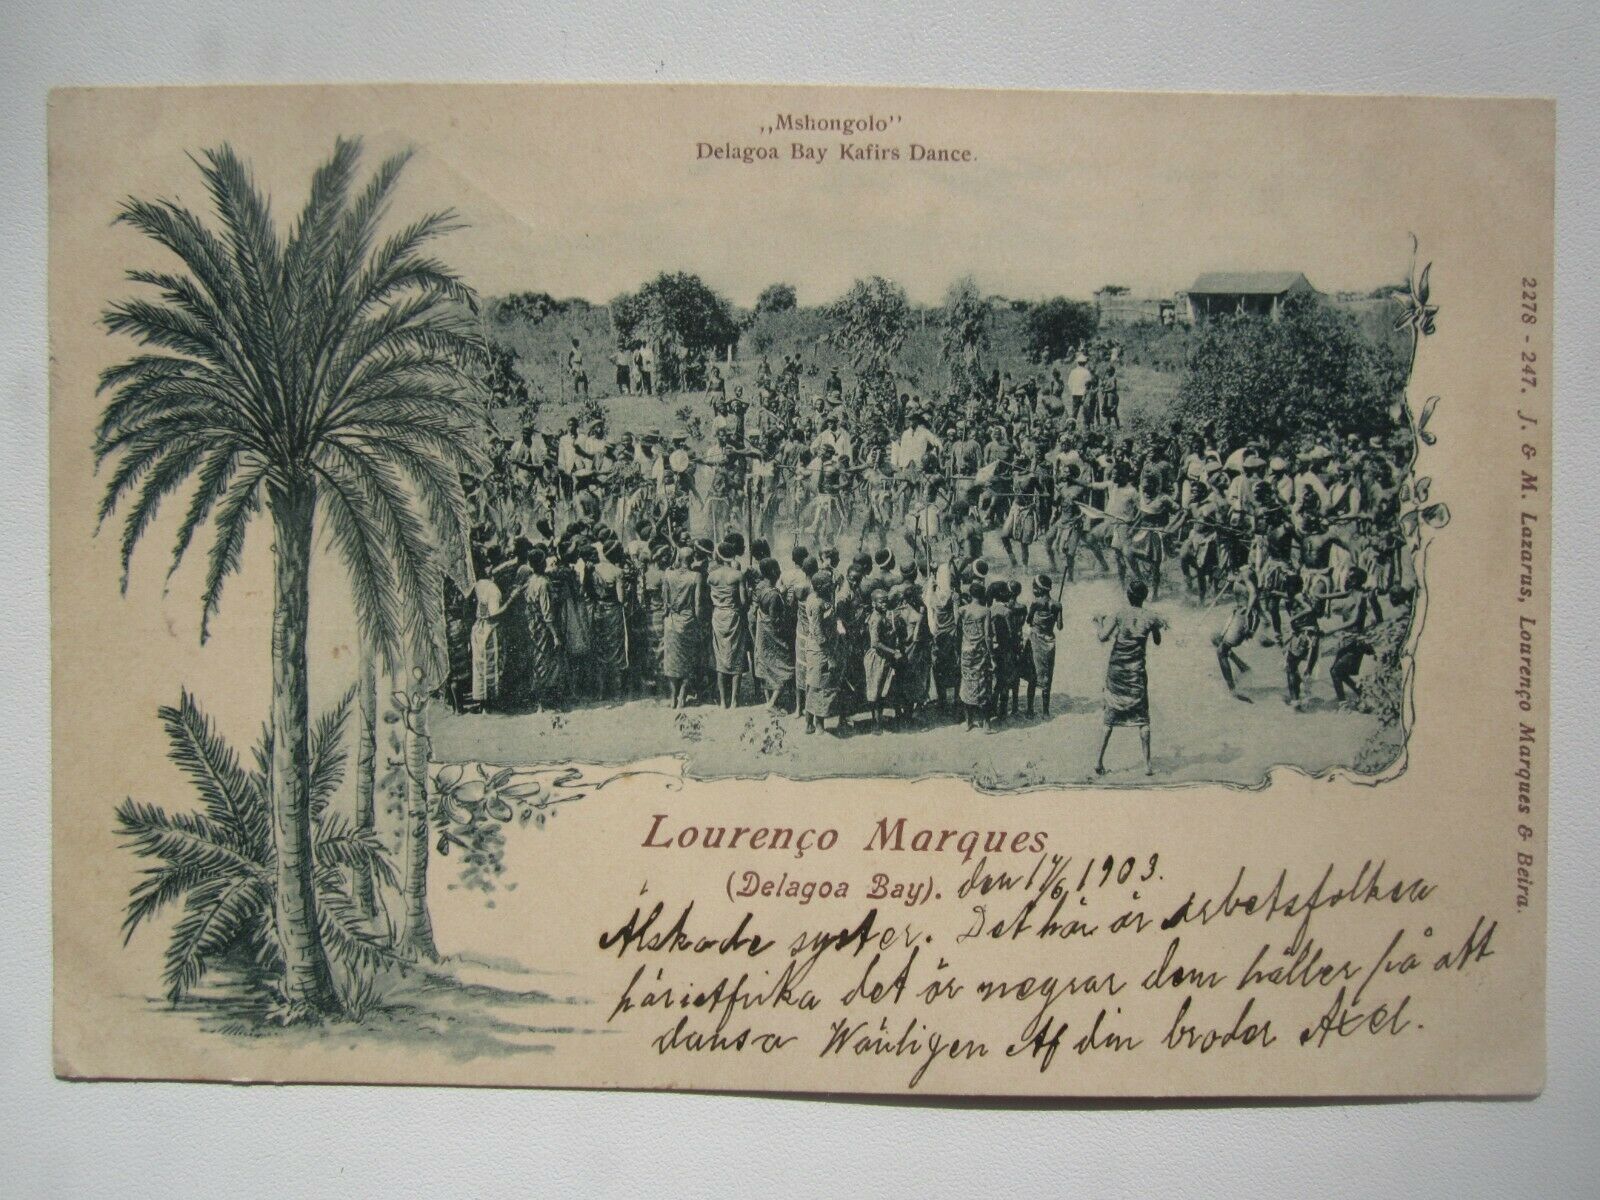 ,,Mshongolo''
Delagoa Bay Kafirs Dance.
2278 - 247. J. & M. Lazarus, Lourenço Marques & Beira.
Lourenço Marques
(Delagoa Bay). den 17/6 1903.
Alskade syster. Det här är arbetsfolken
här i Afrika det är negrar dem håller på att
dansa Wänligen Af din broder Axel.